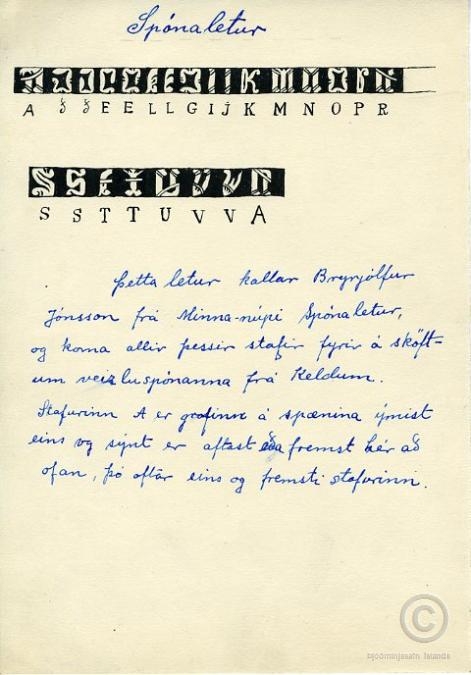 Spónaletur
A ʒ ʒ E E L L G I J K M N O P R
S S T T U V V A
Þetta letur kallar Bryrjólfur
Jónsson frá Minna-núpi Spónaletur,
og koma allir þessir stafir fyrir á sköft-
um veizluspónanna frá Keldum.
Stafurinn A er grafinn á spænina ýmist
eins og sýnt er aftast eða fremst hér að
ofan, þó oftar eins og fremsti stafurinn.
©
Þjóðminjasafn Íslands